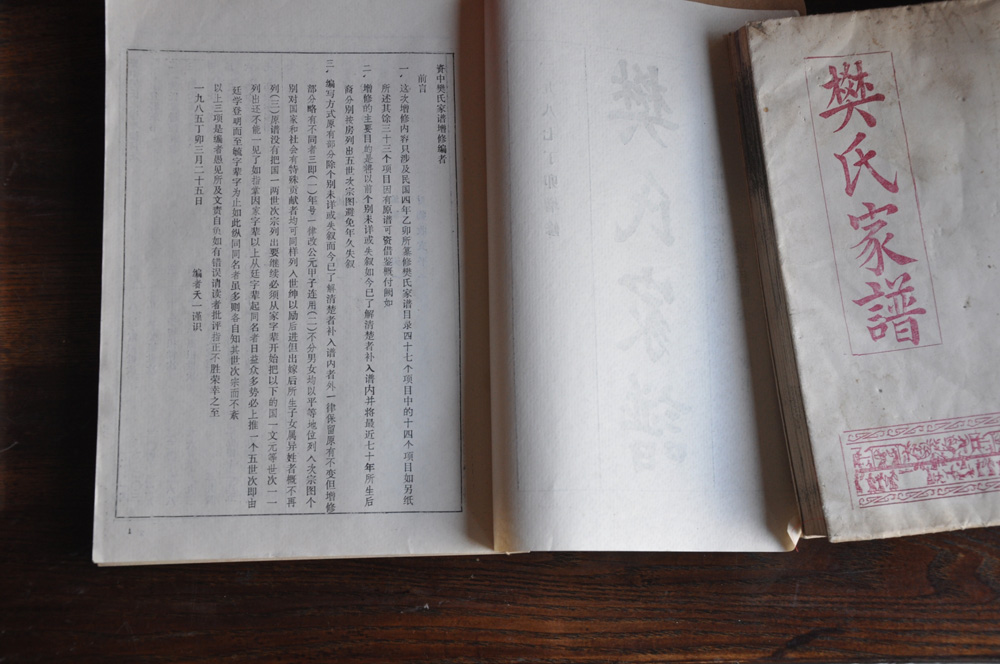 樊氏家谱
资中樊氏家谱增修编者
前言
一．这次增修内容只涉及民国四年乙卯所纂修樊氏家谱目录四十七个项目中的十四个项目如另纸
所述其馀三十三个项目因有原谱可资借鉴概付阙如
二．增修的主要目的是将以前个别未详或失叙如今已了解清楚者补入谱内并将最近七十年所生后
裔分别按房列出五世次宗图避免年久失叙
三．编写方式原有部分除个别未详或失叙而今已了解清楚者补入谱内者外一律保留原有不变但增修
部分略有不同者三即(一)年号一律改公元甲子连用(二)不分男女均以平等地位列入次宗图个
别对国家和社会有特殊贡献者均可同样列入世绅以励后进但出嫁后所生子女属异姓者概不再
列(三)原谱没有把国一两世次宗列出要继续必须从家字辈开始把以下的国一文元等世次一一
列出还不能一见了如指掌因家字辈以上从廷字辈起同名者日益众多势必上推一个五世次即由
廷学登明而至毓字辈字为止如此纵同同名者虽多则各自知其世次宗而不紊
以上三项是编者愚见所及文责自负如有错误请读者批评指正不胜荣幸之至
编者天一谨识
一九八五丁卯三月二十五日
1